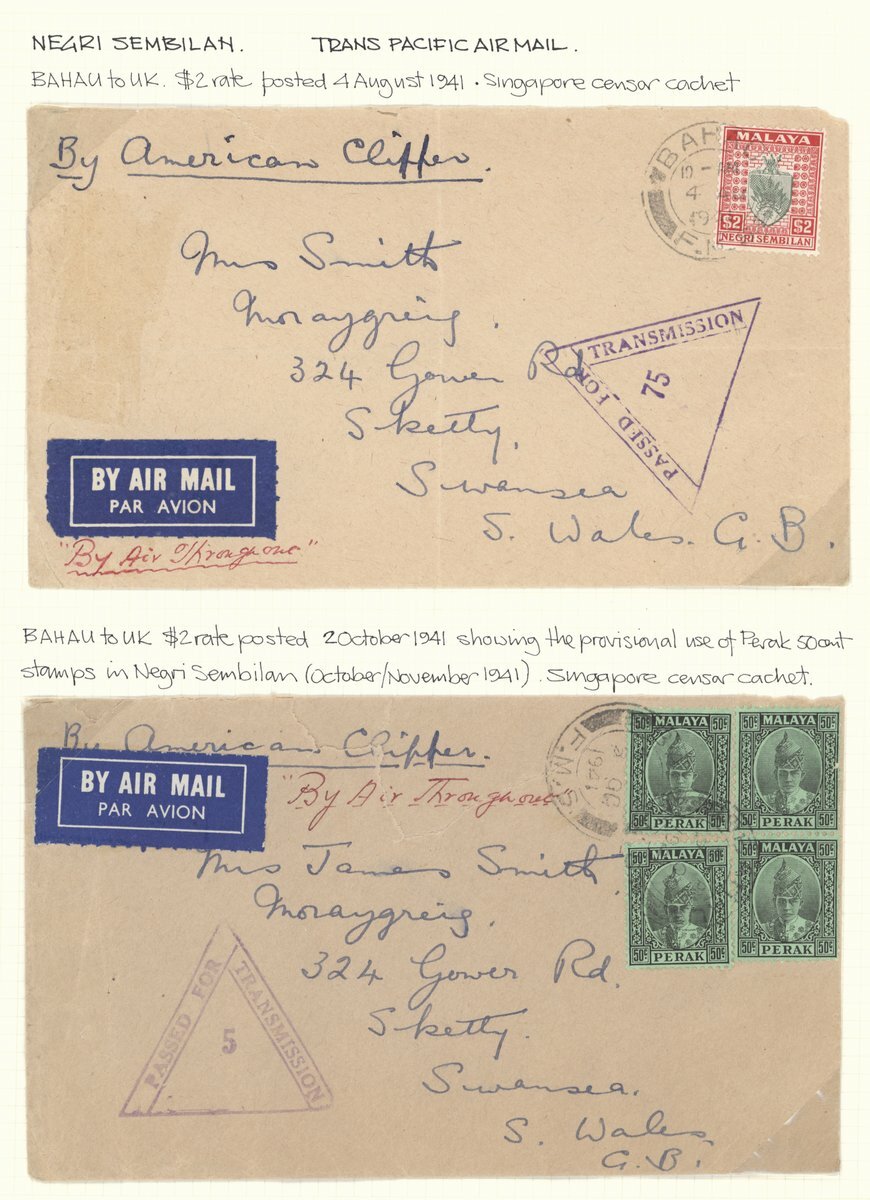 NEGRI SEMBILAN. TRANS PACIFIC AIR MAIL.
BAHAU to UK. $2 rate posted 4 August 1941. Singapore censor cachet
By American Clipper
BAH
4
19
F.M
MALAYA
$2 $2
NEGRI SEMBILAN
Mrs Smith
Moraygreig.
324 Gower Rd
Sketty,
Swansea
S. Wales. G.B.
PASSED FOR TRANSMISSION
75
BY AIR MAIL
PAR AVION
"By Air Throughout"
BAHAU to UK $2 rate posted 2 October 1941 showing the provisional use of Perak 50 cent
stamps in Negri Sembilan (October/November 1941). Singapore censor cachet.
By American Clipper.
BY AIR MAIL
PAR AVION
"By Air Throughout"
F.M.S.
1941
50c MALAYA 50c
50c PERAK 50c
50c MALAYA 50c
50c PERAK 50c
50c MALAYA 50c
50c PERAK 50c
50c MALAYA 50c
50c PERAK 50c
Mrs James Smith
Moraygreig.
324 Gower Rd.
Sketty.
Swansea.
S. Wales.
G.B.
PASSED FOR TRANSMISSION
5